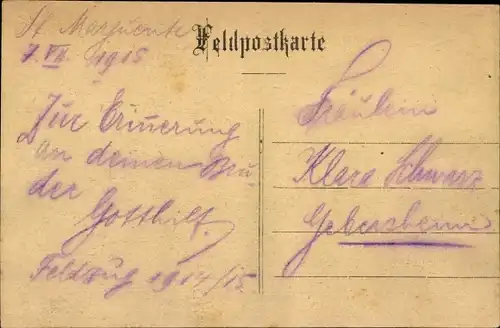 St Marguerite
7. VII. 1915
Feldpostkarte
Zur Erinerung
an deinen Bru
der
Gotthilf.
Feldzug 1914/15.
Fräulein
Klara Schwarz
Gebersheim